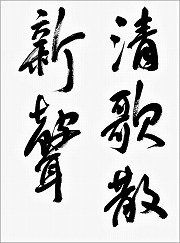 清歌散
新聲